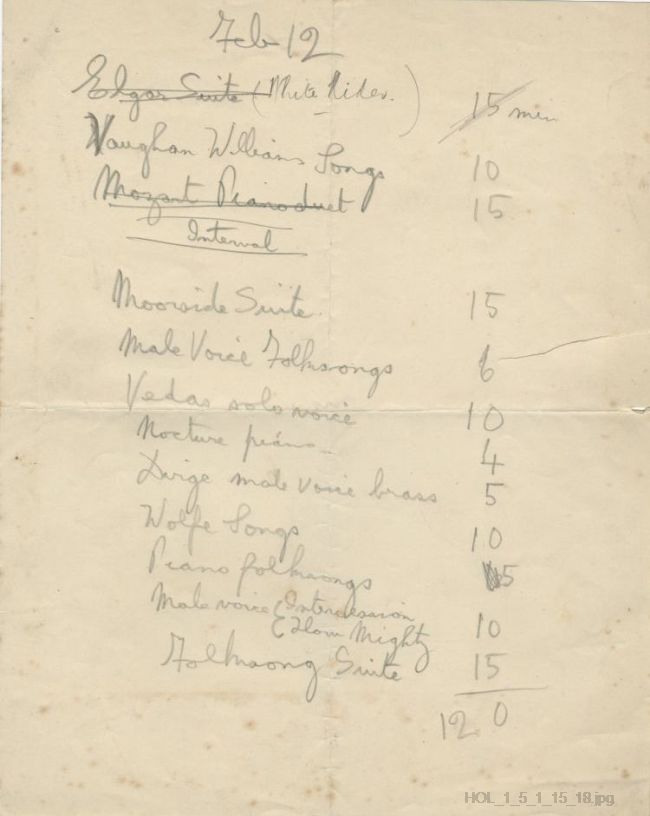 Feb 12
Elgar Suite (White Rider.) 15 min
Vaughan Williams Songs 10
Mozart Piano duet 15
Interval
Moorside Suite 15
Male Voice Folksongs 6
Vedas solo voice 10
Nocture piano 4
Dirge male voice brass 5
Wolfe Songs 10
Piano folksongs 5
Male voice { Intercession
{ How Mighty 10
Folksong Suite 15
120
HOL_1_5_1_15_18.jpg